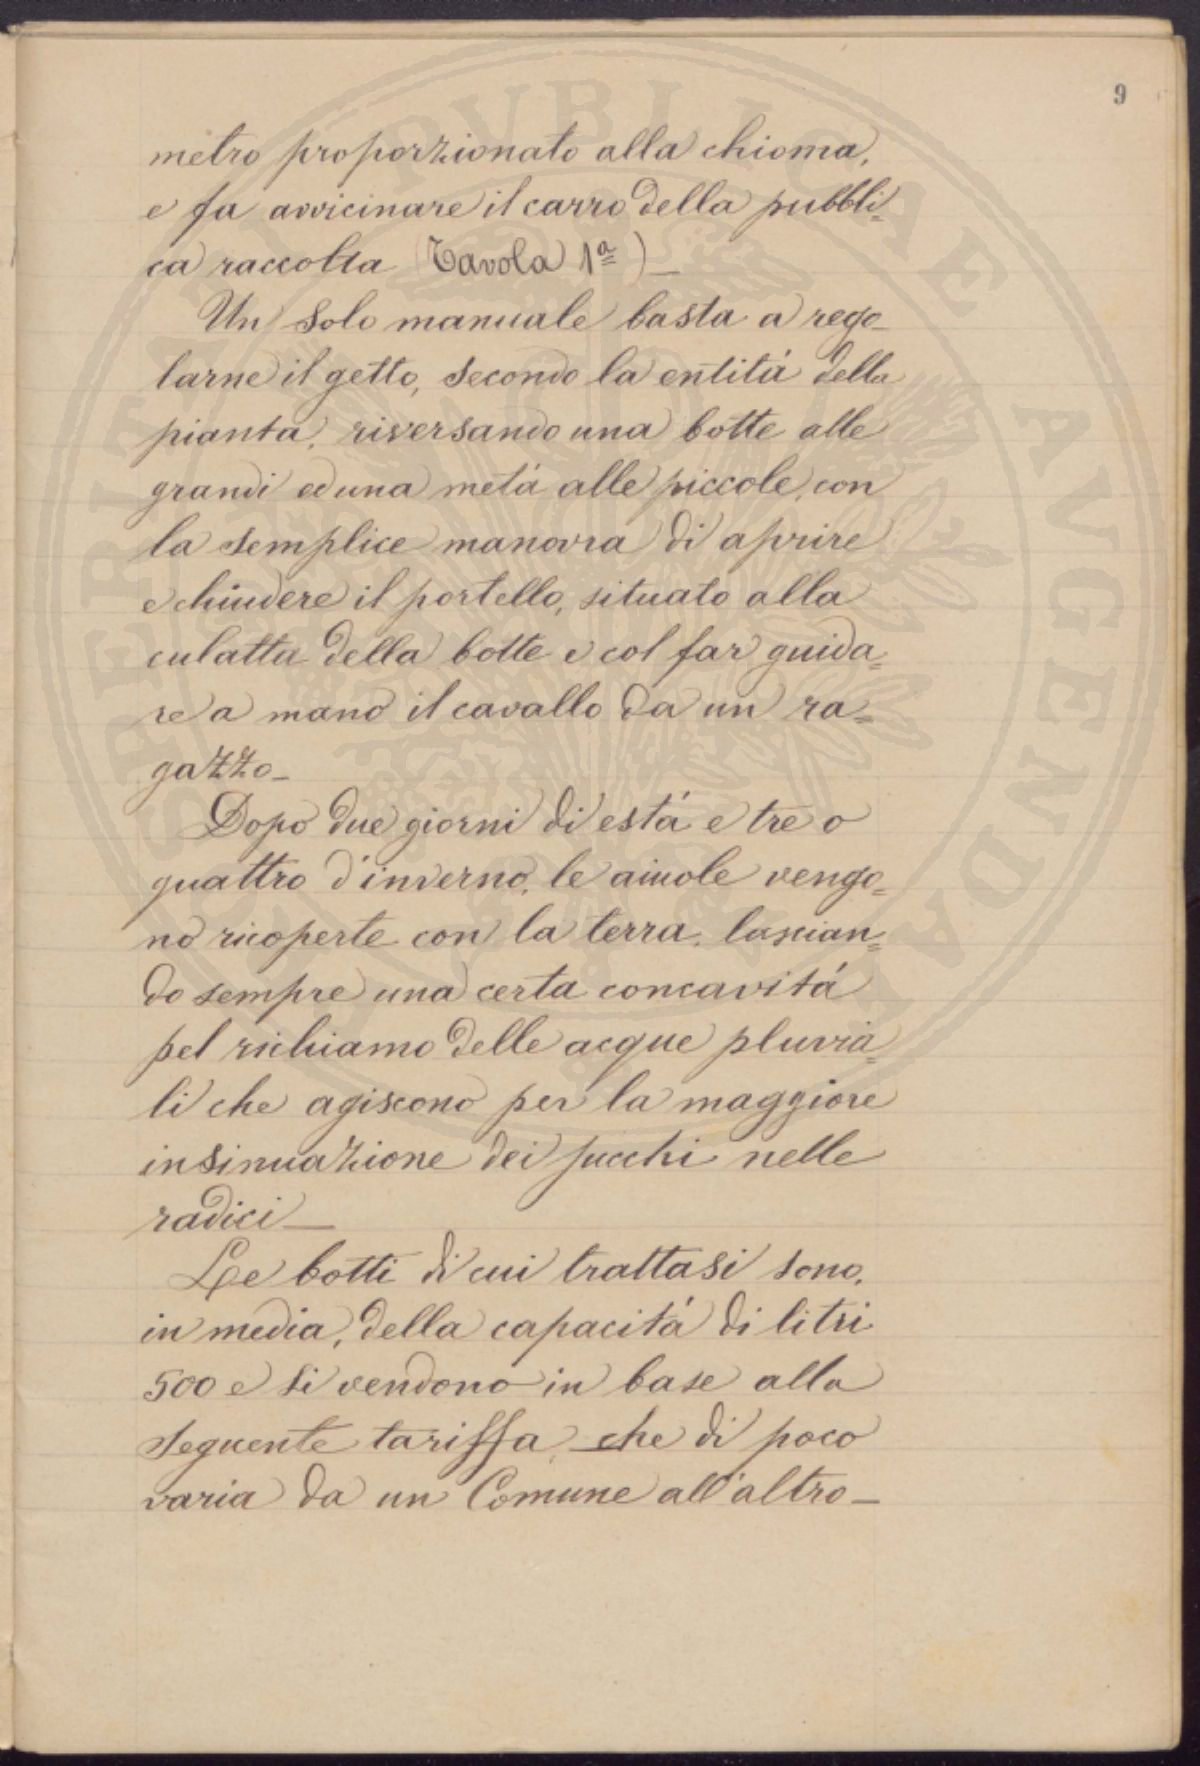 9
metro proporzionato alla chioma,
e fa avvicinare il carro della pubbli=
ca raccolta (Tavola 1ª)_
Un solo manuale basta a rego_
larne il getto, secondo la entitá della
pianta, riversando una botte alle
grandi ed una metá alle piccole, con
la semplice manovra di aprire
e chiudere il portello, situato alla
culatta della botte e col far guida=
re a mano il cavallo da un ra=
gazzo_
Dopo due giorni di está e tre o
quattro d'inverno, le aiuole vengo=
no ricoperte con la terra, lascian=
do sempre una certa concavitá
pel richiamo delle acque pluvia=
li che agiscono per la maggiore
insinuazione dei succhi nelle
radici_
Le botti di cui trattasi sono,
in media, della capacitá di litri
500 e si vendono in base alla
seguente tariffa, che di poco
varia da un Comune all'altro_
PROSPERITATI PVBLICAE AVGENDAE